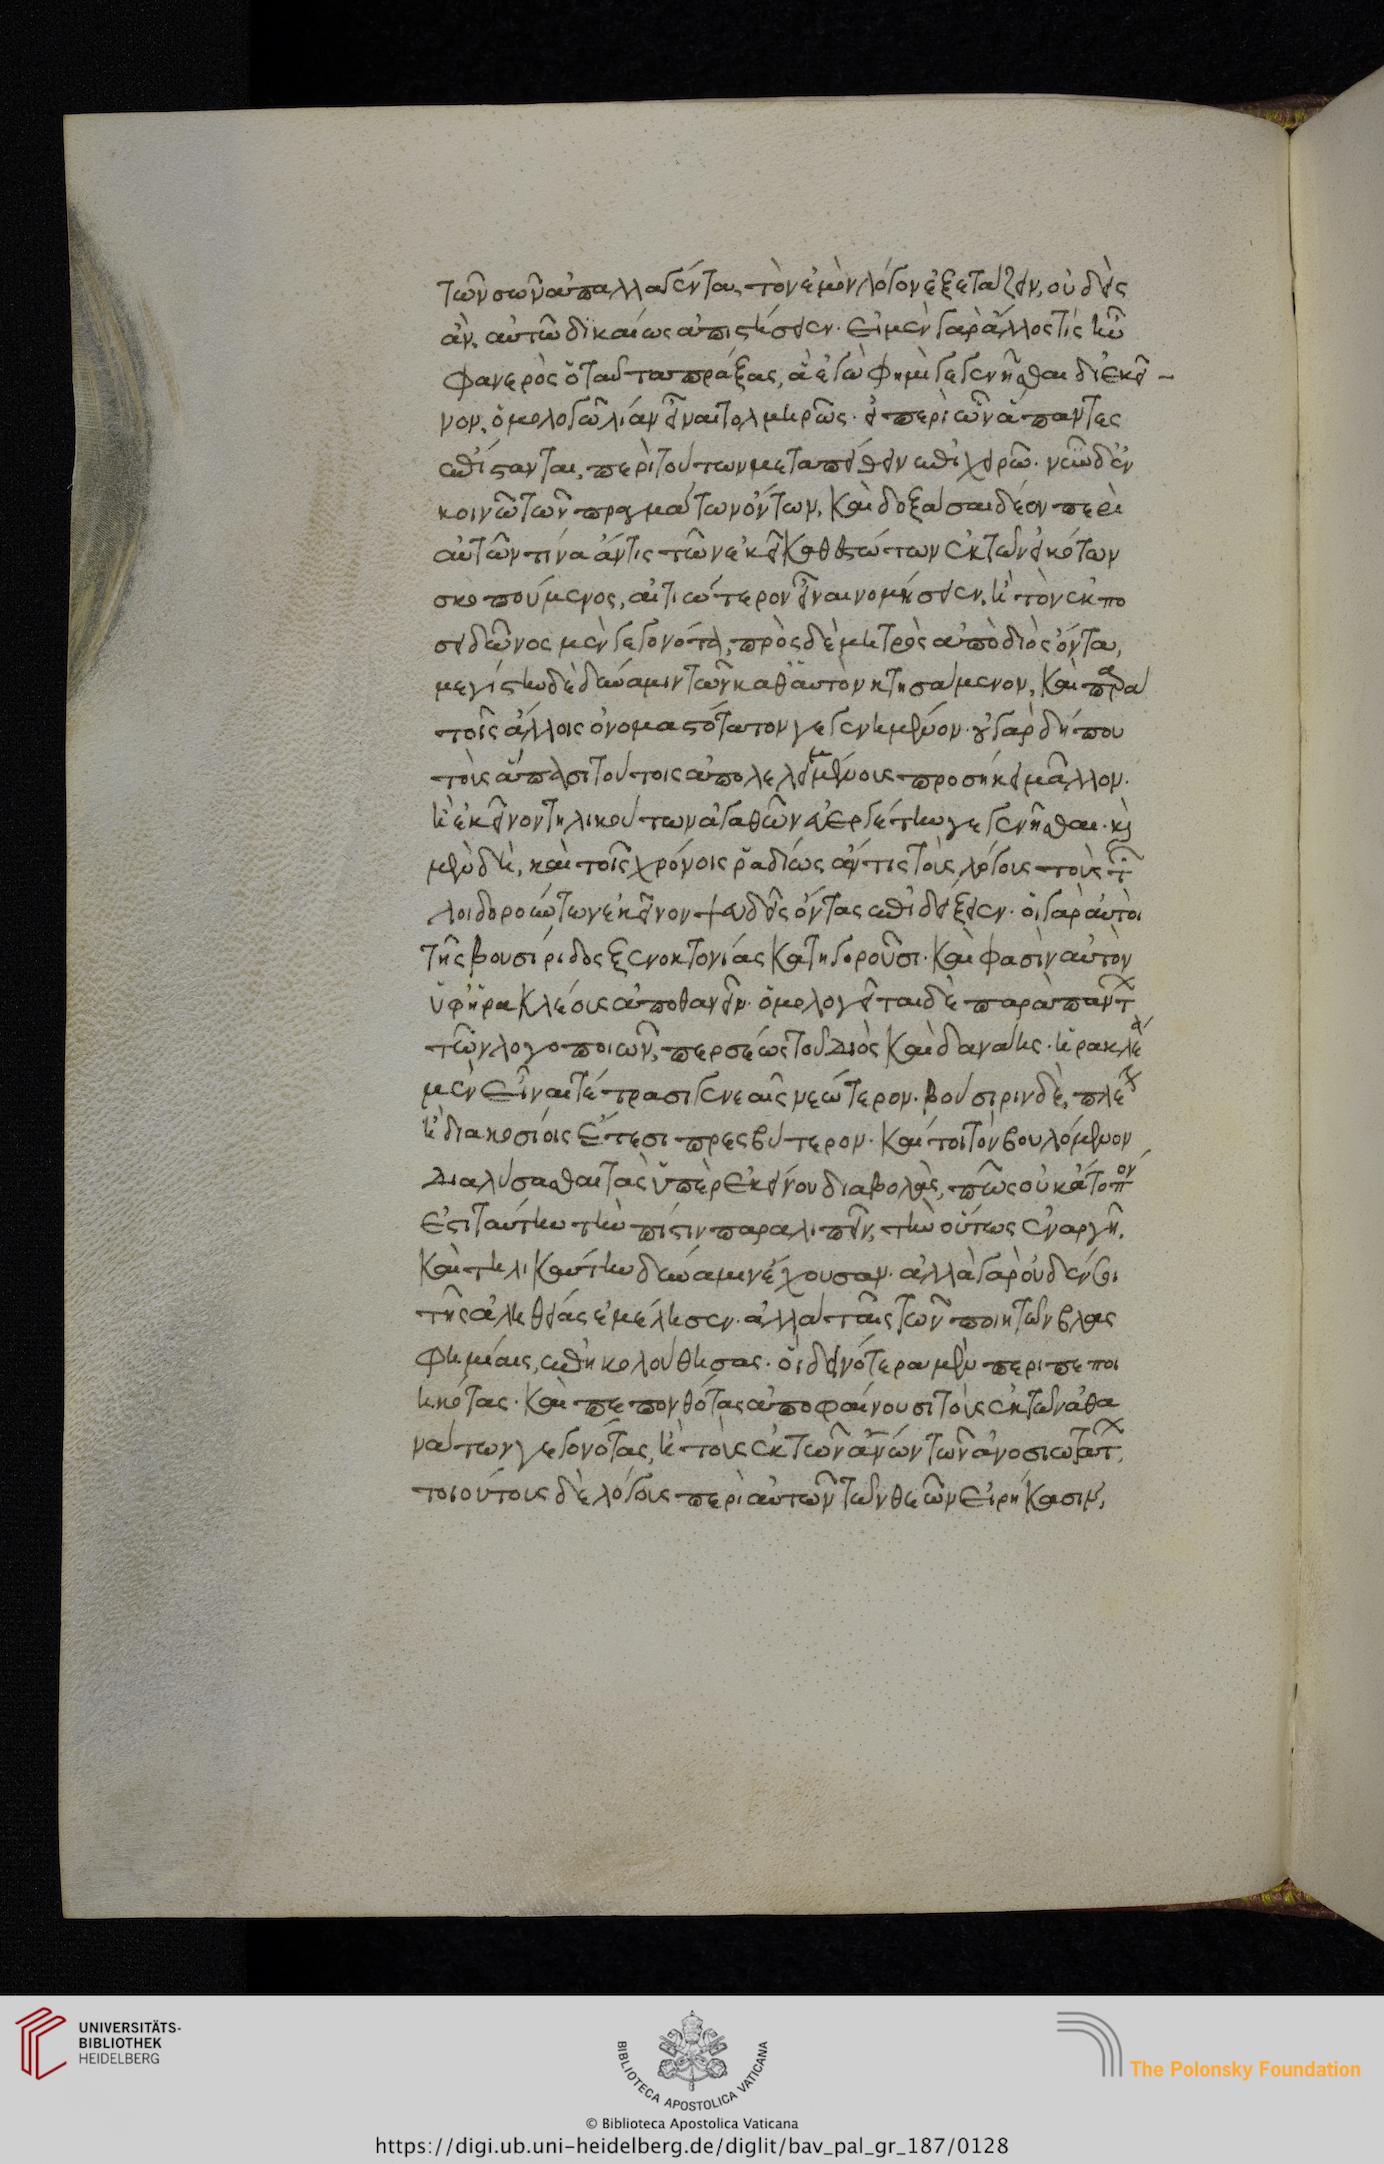 τῶν σῶν ἀπαλλαγέντα, τὸν ἐμὸν λόγον ἐξετάζειν, οὐδεὶς
ἂν, αὐτῶ δικαίως ἀπιστήσειεν. εἰ μὲν γὰρ ἄλλος τίς ἦν
φανερὸς ὁ ταῦτα πράξας, ἃ ἐγὼ φημὶ γεγενῆσθαι δι' ἐκεῖ-
νον, ὁμολογῶ λίαν εἶναι τολμηρῶς. εἰ περὶ ὧν ἅπαντες
ἐπίστανται, περὶ τούτων μεταπείθειν ἐπιχειρῶ. νῦν δ' ἐν
κοινῶ τῶν πραγμάτων ὄντων, καὶ δοξάσαι δέον περὶ
αὐτῶν τίνα ἄν τις τῶν ἐκεῖ καθεστώτων ἐκ τῶν εἰκότων
σκοπούμενος, αἰτιώτερον εἶναι νομήσειεν, ἢ τὸν ἐκ πο
σειδῶνος μὲν γεγονότα, πρὸς δὲ μητρὸς ἀπὸ διὸς ὄντα,
μεγίστην δὲ δύναμιν τῶν καθ' αὑτὸν κτησάμενον, καὶ παρὰ
τοῖς ἄλλοις ὀνομαστότατον γεγενημένον. οὐ γὰρ δήπου
τοὺς ἅπασι τούτοις ἀπολελειμμένους προσήκει μᾶλλον.
ἢ ἐκεῖνον τηλικούτων ἀγαθῶν εὐεργέτην γεγενῆσθαι. καὶ
μὲν δὴ, καὶ τοῖς χρόνοις ῥαδίως ἄν τις τοὺς λόγους τοὺς τῶν
λοιδορούντων ἐκεῖνον ψευδεῖς ὄντας ἐπιδείξειεν. οἱ γὰρ αὐτοὶ
τῆς βουσίριδος ξενοκτονίας κατηγοροῦσι. καὶ φασὶν αὐτὸν
ὑφ' ἡρακλέους ἀποθανεῖν. ὁμολογεῖται δὲ παρὰ πάντων
τῶν λογοποιῶν, περσέως τοῦ διὸς καὶ δανάης. ἡρακλέα
μὲν εἶναι τέτρασι γενεαῖς νεώτερον. βούσιριν δὲ, πλέον
ἢ διακοσίοις ἔτεσι πρεσβύτερον. καί τοι τὸν βουλόμενον
διαλύσασθαι τὰς ὑπὲρ ἐκείνου διαβολὰς, πῶς οὐκ ἄτοπόν
ἐστι ταύτην τὴν πίστιν παραλιπεῖν, τὴν οὕτως ἐναργῆ,
καὶ τηλικαύτην δύναμιν ἔχουσαν. ἀλλὰ γὰρ οὐδέν σοι
τῆς ἀληθείας ἐμέλησεν. ἀλλὰ ταῖς τῶν ποιητῶν βλας
φημίαις, ἐπηκολούθησας. οἳ δεινότερα μὲν περι πεποι
ηκότας. καὶ πεπονθότας ἀποφαίνουσι τοὺς ἐκ τῶν ἀθα
νάτων γεγονότας, ἢ τοὺς ἐκ τῶν ἀνων τῶν ἀνοσιωτάτων,
τοιούτους δὲ λόγους περὶ αὐτῶν τῶν θεῶν εἰρήκασιν,
UNIVERSITÄTS-
BIBLIOTHEK
HEIDELBERG
BIBLIOTECA APOSTOLICA VATICANA
The Polonsky Foundation
© Biblioteca Apostolica Vaticana
https://digi.ub.uni-heidelberg.de/diglit/bav_pal_gr_187/0128